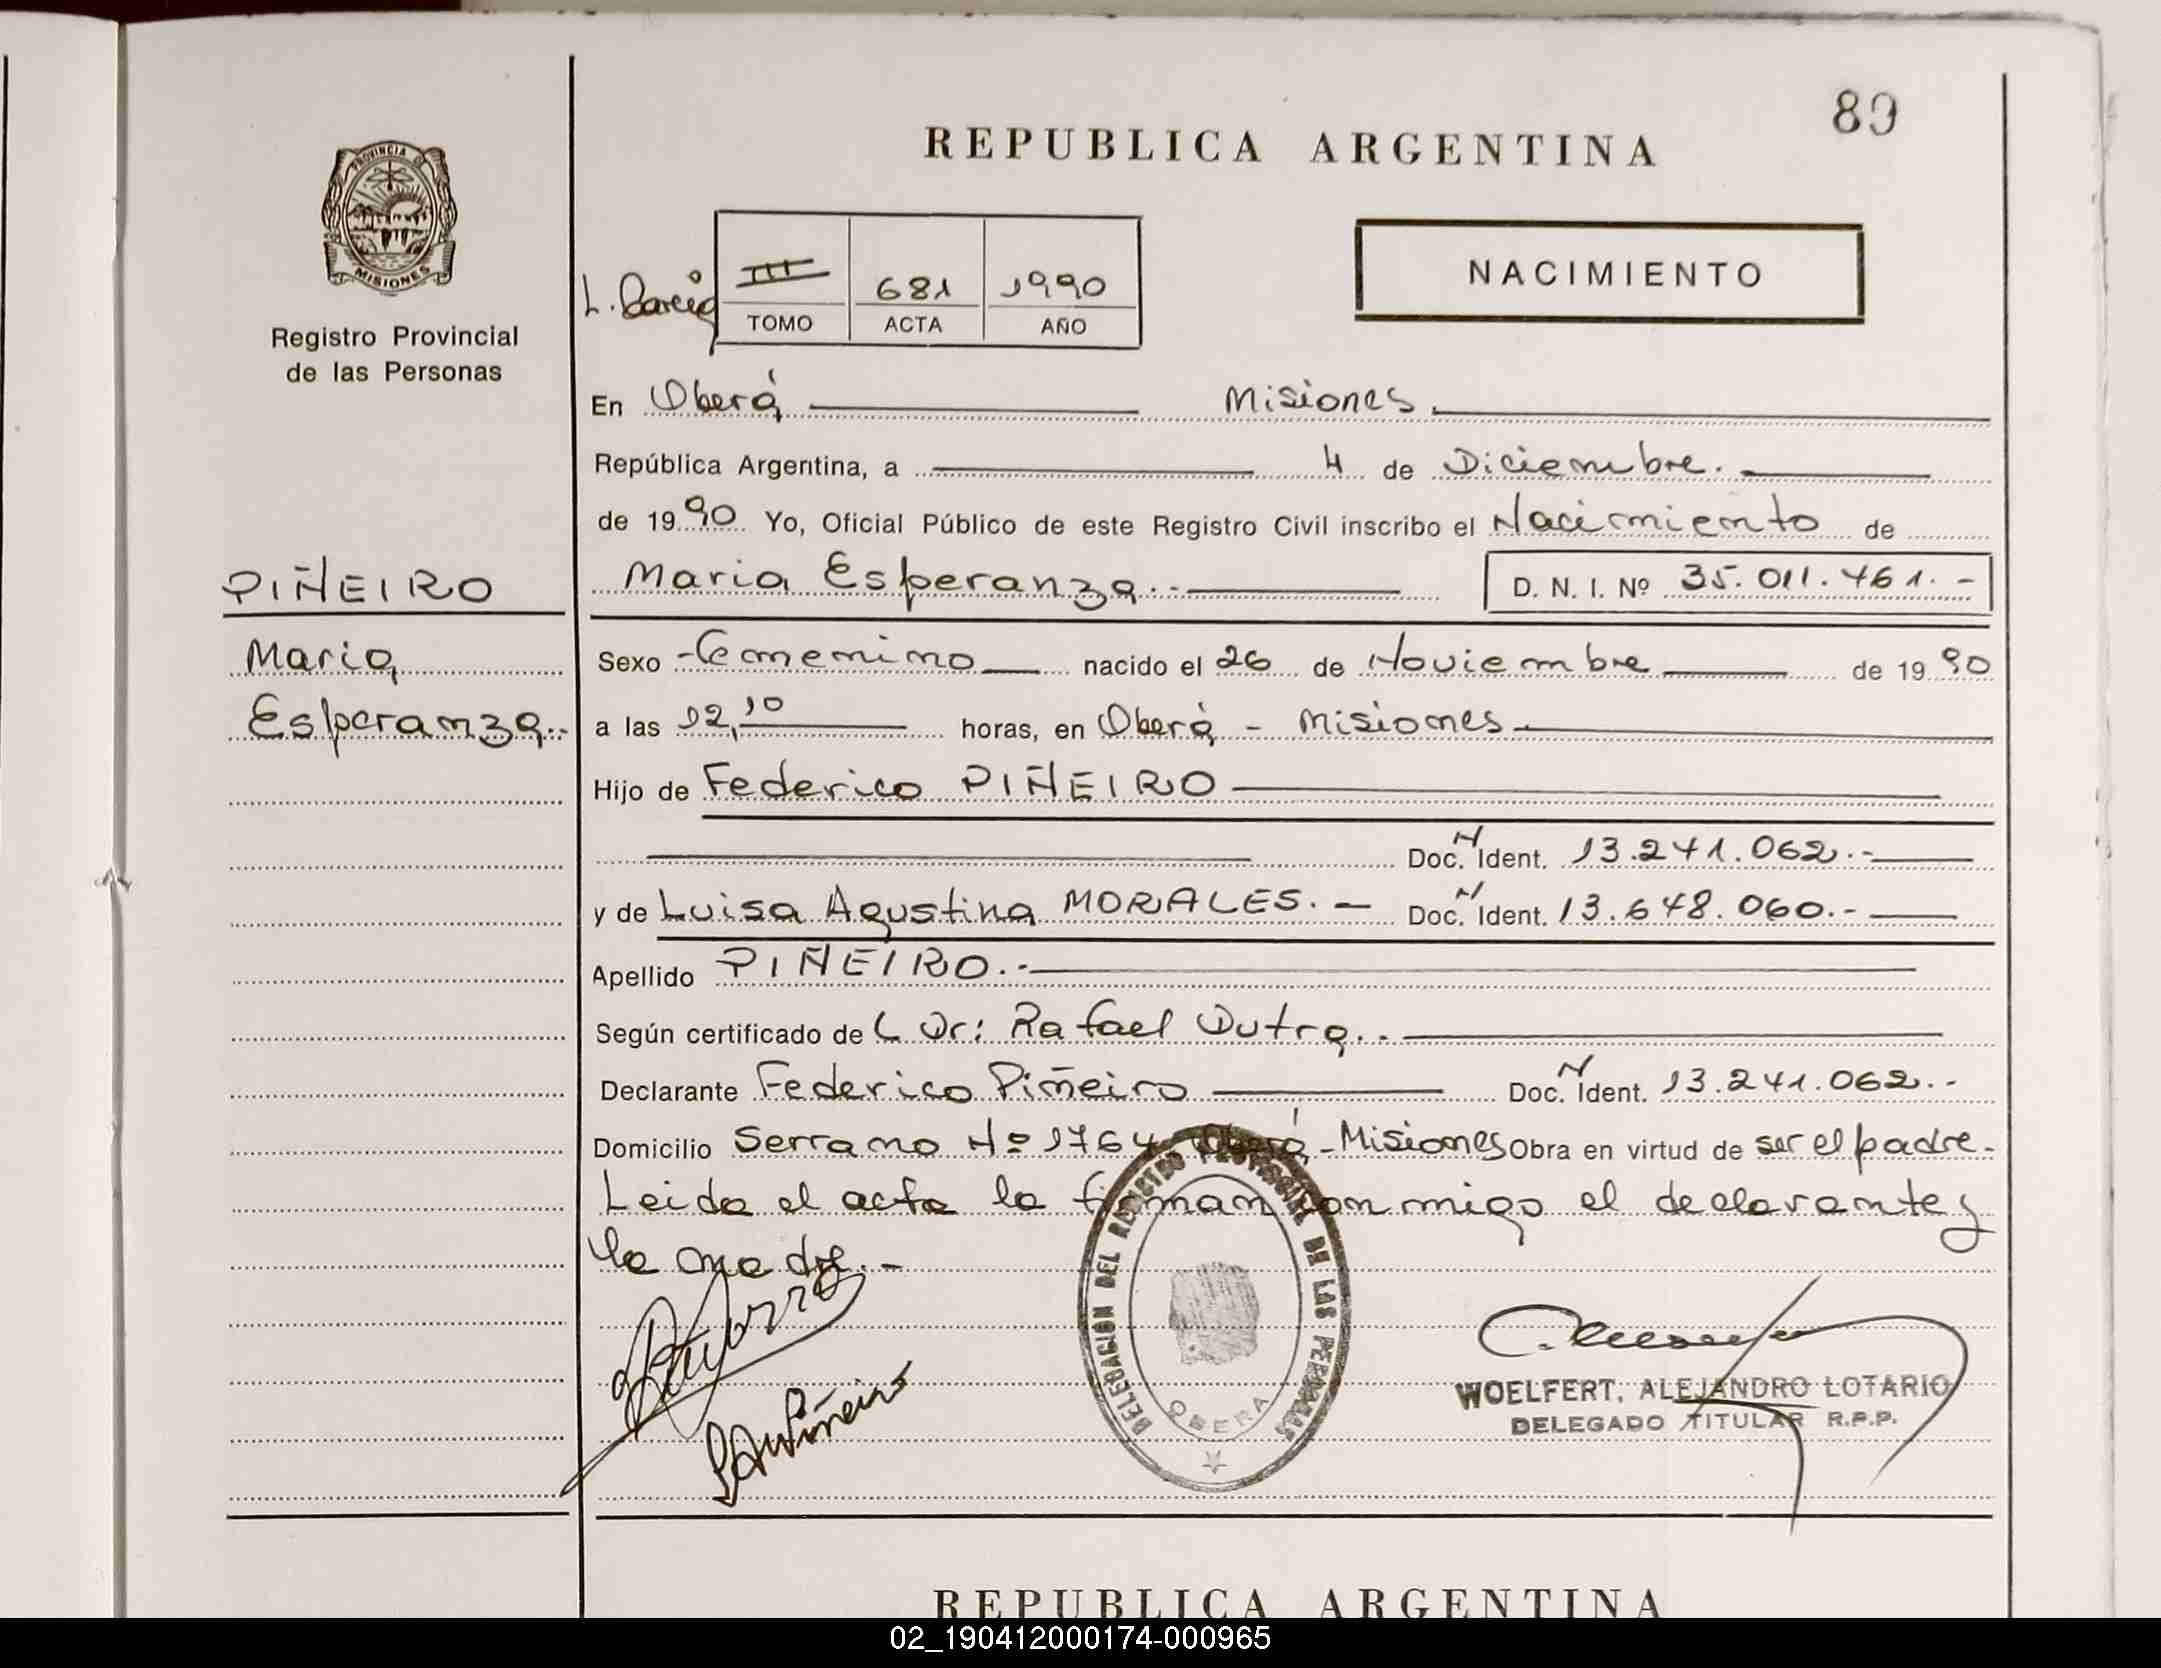 89
REPUBLICA ARGENTINA
PROVINCIA DE
MISIONES
Registro Provincial
de las Personas
L. Garcia
III 681 1990
TOMO ACTA AÑO
NACIMIENTO
En Oberá Misiones
República Argentina, a 4 de Diciembre.
de 1990 Yo, Oficial Público de este Registro Civil inscribo el Nacimiento de
PIÑEIRO
Maria Esperanza.- D. N. I. Nº 35.011.461.-
Maria
Sexo Femenino nacido el 26 de Noviembre de 1990
Esperanza.-
a las 12,10 horas, en Oberá - Misiones
Hijo de Federico PIÑEIRO
Doc. N Ident. 13.241.062.-
y de Luisa Agustina MORALES.- Doc. N Ident. 13.648.060.-
Apellido PIÑEIRO.-
Según certificado de L Dr: Rafael Dutra..
Declarante Federico Piñeiro Doc. N Ident. 13.241.062.-
Domicilio Serrano Nº 1764 Oberá - Misiones Obra en virtud de ser el padre.
Leida el acta la firman conmigo el declarante y
la madre.-
DELEGACION DEL REGISTRO PROVINCIAL DE LAS PERSONAS
OBERA
WOELFERT, ALEJANDRO LOTARIO
DELEGADO TITULAR R.P.P.
REPUBLICA ARGENTINA
02_190412000174-000965